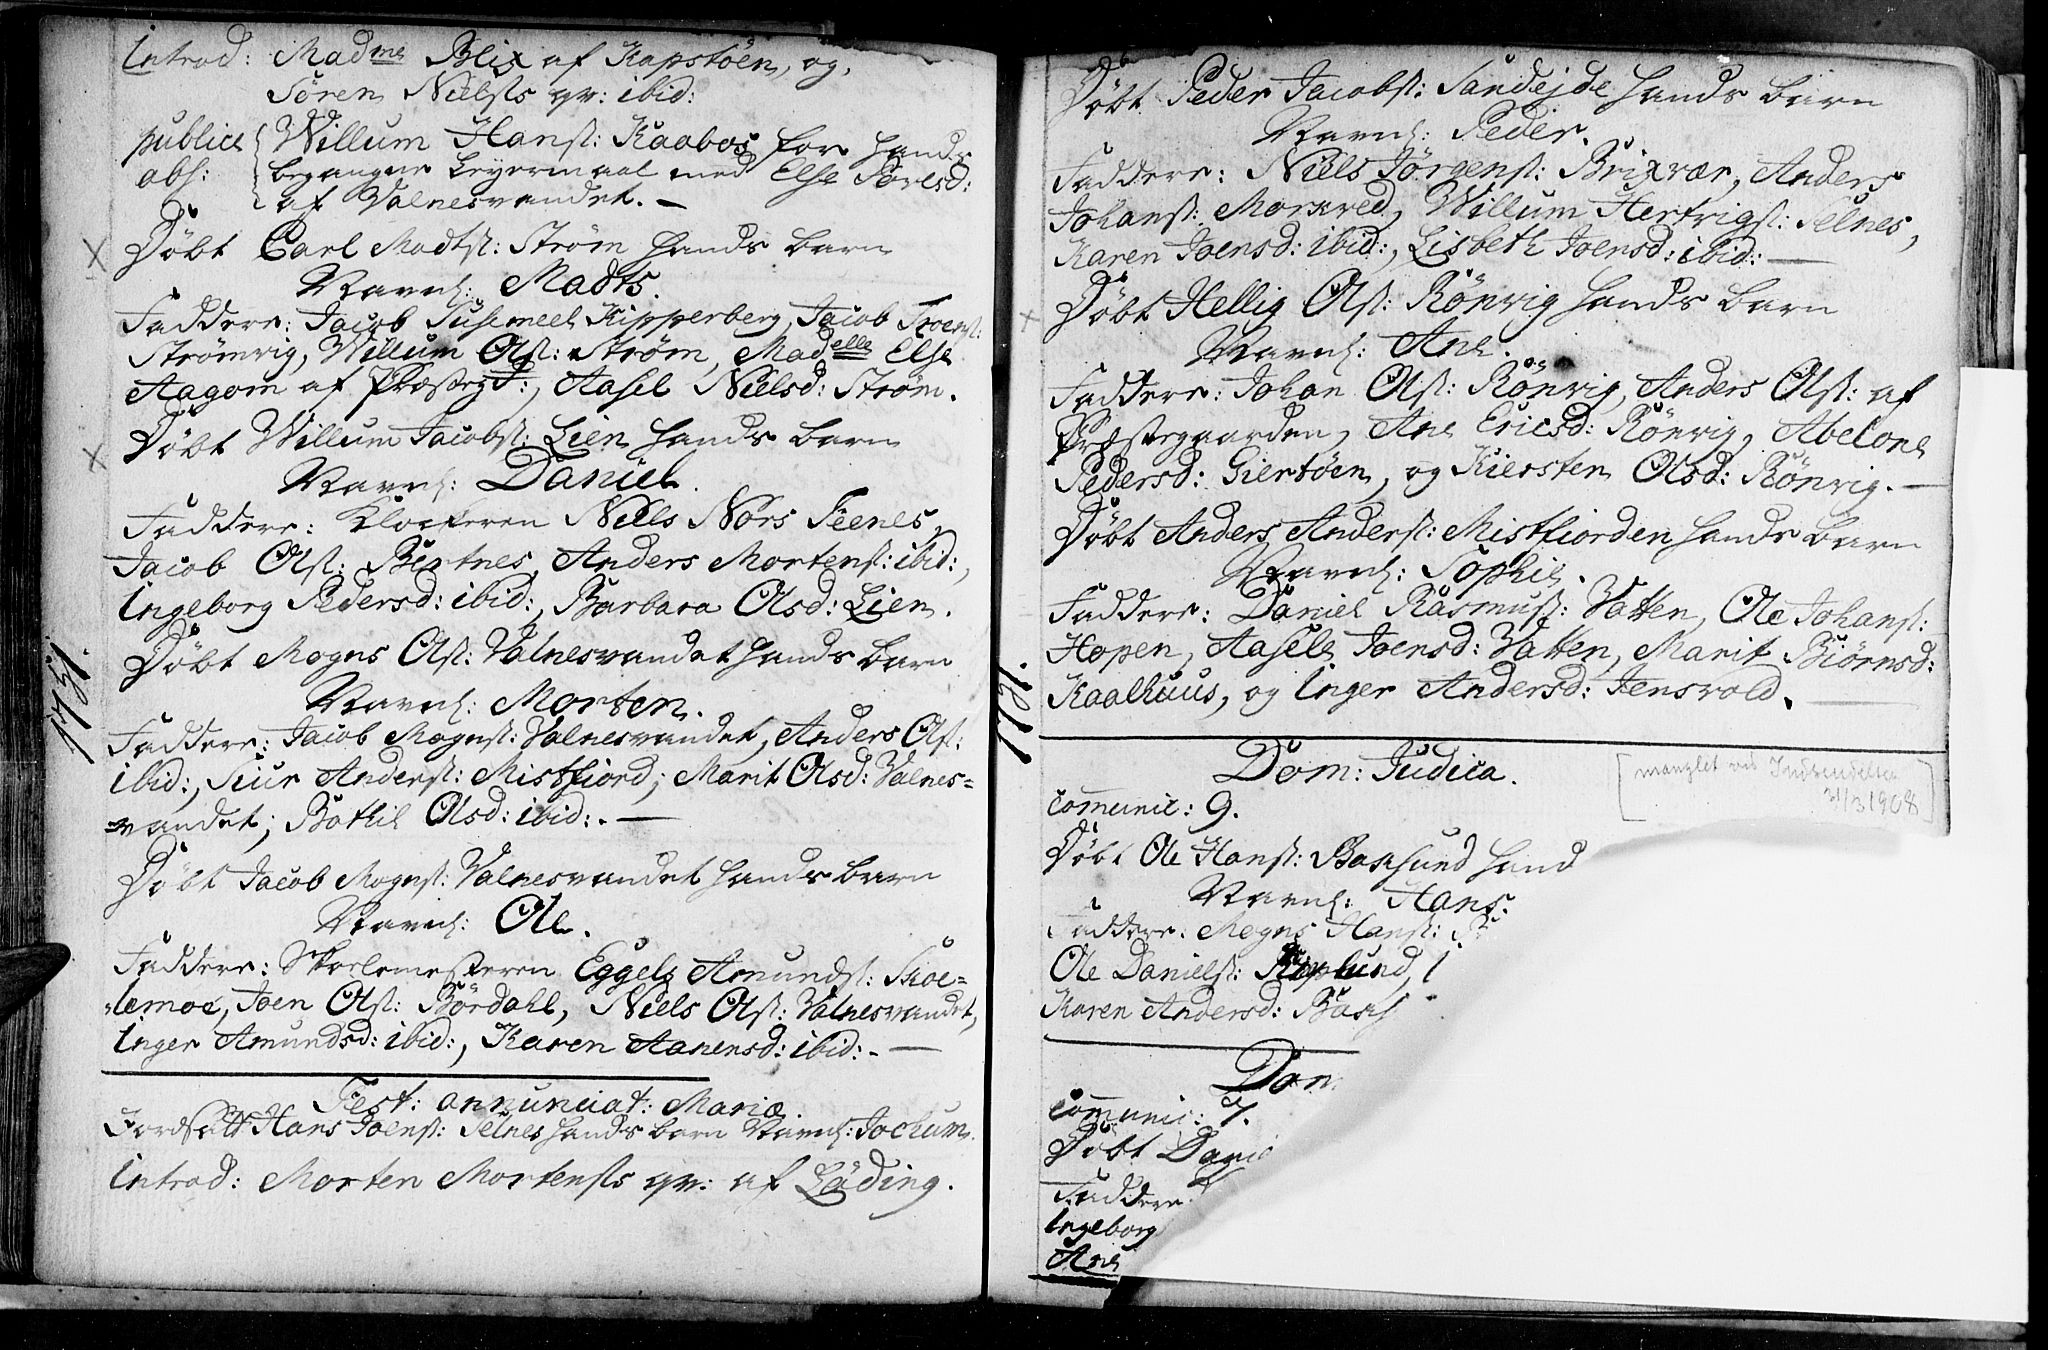 Introd: Madme Blix af Kapstöen, og,
Sören Nielsts qv: ibid:
publice Willum Hanst: Kaabos for hands
abs: begangne Leyermaal med Else Povelsd:
af Valnesvandet. —
Döbt Carl Madtst: Ström hands barn
Navnl: Madts.
Faddere: Jacob Tusemeel Kipperberg, Jacob Troenst:
Strömvig, Willum Olst: Ström, Madelle Else
Aagom af Præsteg:, Aasel Nielsd: Ström.
Döbt Willum Jacobst: Lien hands barn
Navnl: Daniel.
Faddere: Klockeren Niels Nörs Seenes,
Jacob Olst: Bertnes, Anders Mortenst: ibid:,
Ingeborg Pedersd: ibid:, Barbara Olsd: Lien.
Döbt Mogns Olst: Valnesvandet hands barn
Navnl: Morten.
1731.
Faddere: Jacob Mognst: Valnesvandet, Anders Olst:
ibid:, Siur Anderst: Mistfiord; Marit Olsd: Valnes=
vandet; Bothil Olsd: ibid:. —
Döbt Jacob Mognst: Valnesvandet hands barn
Navnl: Ole.
Faddere: Skolemesteren Eggels Amundst: Skoe=
lemoe, Joen Olst: Bördahl, Niels Olst: Valnesvandet,
Inger Amundsd: ibid:, Karen Aanensd: ibid:. —
Fest: annunciat: Mariæ.
Fordsatt Hans Joenst: Selnes hands barn Navnl: Jochum.
Introd: Morten Mortensts qv: af Löding.
Döbt Peder Jacobst: Sandejde hands barn
Navnl: Peder.
Faddere: Niels Jörgenst: Brixvær, Anders
Johanst: Morxved, Willum Hertvigst: Selnes,
Karen Joensd: ibid:, Lisbeth Joensd: ibid: —
Döbt Hellig Olst: Rönvig hands barn
Navnl: Ane.
Faddere: Johan Olst: Rönvig, Anders Olst: af
Præstegaarden, Ane Ericsd: Rönvig, Abelone
Pedersd: Giertöen, og Kiersten Olsd: Rönvig. —
Döbt Anders Anderst: Mistfiorden hands barn
Navnl: Sophie.
Faddere: Daniel Rasmust: Vatten, Ole Johanst:
Hopen, Aasele Joensd: Vatten, Marit Biörnsd:
Kaalhuus, og Inger Andersd: Jensvold. —
1731.
Dom: Judica.
[manglet ved Indsendelsen
31/3 1908]
Communic: 9.
Döbt Ole Hanst: Baxsund hand
Navnl: Hans.
Faddere: Mogns Hanst:
Ole Danielst:
Karen Andersd: Baxs
Dom
Communic: 7.
Döbt Dani
Faddere:
Ingeborg
Ane